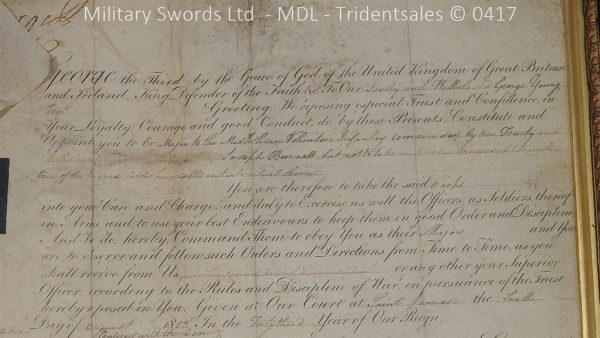 Military Swords Ltd - MDL - Tridentsales © 0417
George the Third by the Grace of God, of the United Kingdom of Great Britain
and Ireland, King, Defender of the Faith &c To Our Trusty and Wellbeloved George Young
Greeting. We reposing especial Trust and Confidence, in
Your Loyalty, Courage and good Conduct, do, by these Presents, Constitute and
Appoint you to be Major to the Volunteer Infantry commanded by our Trusty and
Joseph Barrett but not to take rank in our Army except during the
time of the said Corps being called out into actual Service
You are therefore to take the said Corps
into your Care and Charge, and duly to Exercise as well the Officers as Soldiers thereof
in Arms and to use your best Endeavours to keep them in good Order and Discipline
And We do, hereby, Command Them to obey You as their Major and You
are to observe and follow such Orders and Directions from Time to Time, as you
shall receive from Us or any other your Superior
Officer, according to the Rules and Discipline of War, in pursuance of the Trust
hereby reposed in You. Given at Our Court at Saint James's the
Day of August 1803 In the Forty third Year of Our Reign.
Entered with the